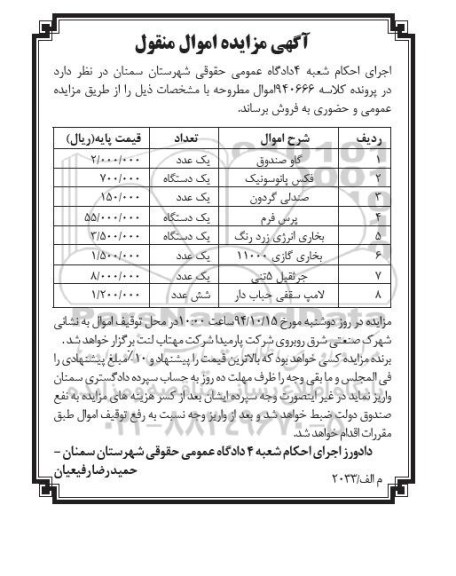 آگهی مزایده اموال منقول
اجرای احکام شعبه ۴دادگاه عمومی حقوقی شهرستان سمنان در نظر دارد
در پرونده کلاسه ۹۴۰۶۶۶اموال مطروحه با مشخصات ذیل را از طریق مزایده
عمومی و حضوری به فروش برساند.
ردیف شرح اموال تعداد قیمت پایه(ریال)
۱ گاو صندوق یک عدد ۲/۰۰۰/۰۰۰
۲ فکس پانوسونیک یک دستگاه ۷۰۰/۰۰۰
۳ صندلی گردون یک عدد ۱۵۰/۰۰۰
۴ پرس فرم یک دستگاه ۵۵/۰۰۰/۰۰۰
۵ بخاری انرژی زرد رنگ یک دستگاه ۳/۵۰۰/۰۰۰
۶ بخاری گازی ۱۱۰۰۰ یک عدد ۱/۵۰۰/۰۰۰
۷ جرثقیل ۵تنی یک عدد ۸/۰۰۰/۰۰۰
۸ لامپ سقفی حباب دار شش عدد ۱/۲۰۰/۰۰۰
مزایده در روز دوشنبه مورخ ۹۴/۱۰/۱۵ساعت ۱۰:۰۰در محل توقیف اموال به نشانی
شهرک صنعتی شرق روبروی شرکت پارمیدا شرکت مهتاب لنت برگزار خواهد شد.
برنده مزایده کسی خواهد بود که بالاترین قیمت را پیشنهاد و ۱۰٪مبلغ پیشنهادی را
فی المجلس و ما بقی وجه را ظرف مهلت ده روز به حساب سپرده دادگستری سمنان
واریز نماید در غیر اینصورت وجه سپرده ایشان بعد از کسر هزینه های مزایده به نفع
صندوق دولت ضبط خواهد شد و بعد از واریز وجه نسبت به رفع توقیف اموال طبق
مقررات اقدام خواهد شد.
دادورز اجرای احکام شعبه ۴ دادگاه عمومی حقوقی شهرستان سمنان –
حمیدرضا رفیعیان
م الف/۲۰۳۳
ParsNamadData
۰۲۱-۸۸۳۴۹۶۷۰-۵